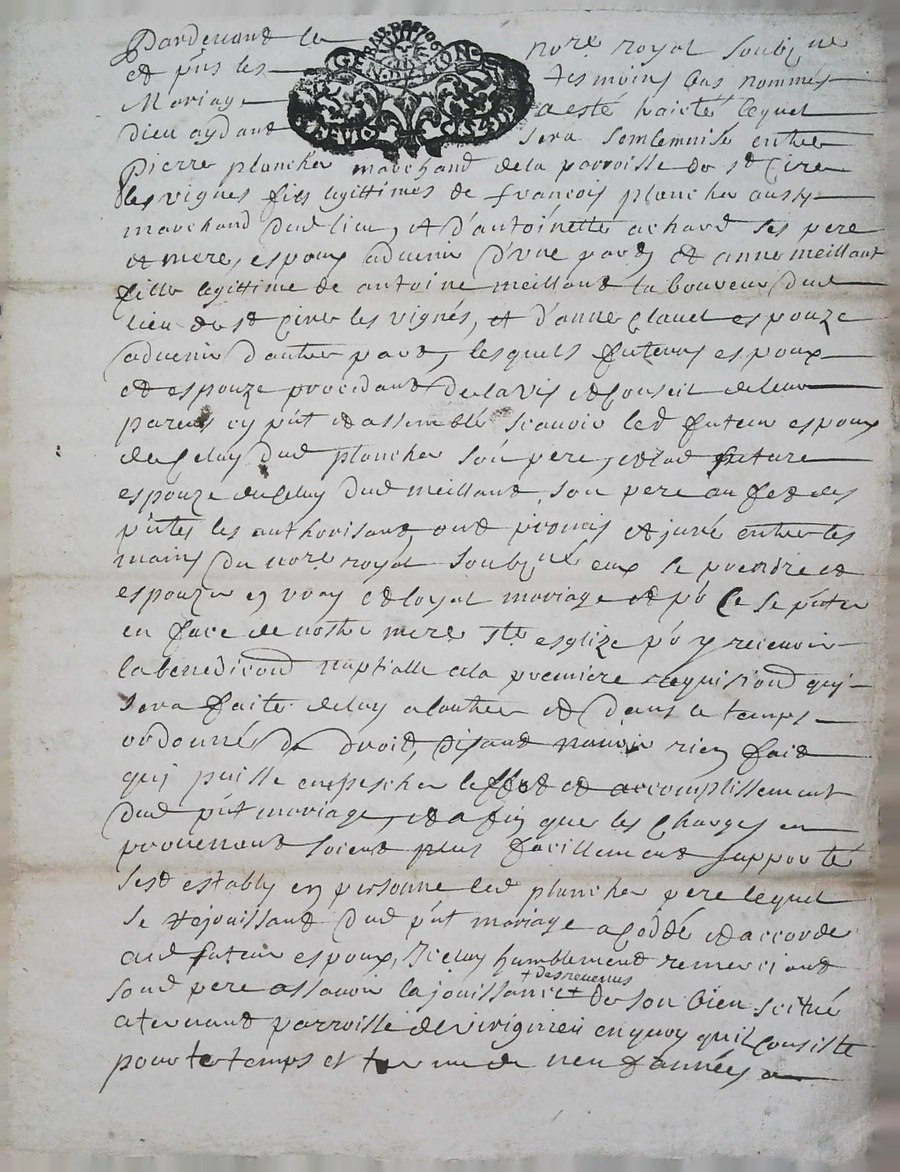 Pardevant le nore royal soubzne
et pnts les tesmoins bas nommés
Mariage a esté traicté lequel
dieu aydant sera solemnisé entre
pierre plancher marchand de la parroisse de st Cire
les vignes fils legittimes de francois plancher aussy
marchand dud lieu, et d'antoinette achard ses pere
et mere, espoux advenir d'une part, et anne meillant
fille legittime de antoine meillant laboureur dud
lieu de st Cire les vignes, et d'anne Clauel espouze
advenir d'autre part, lesquels futurs espoux
et espouze procedant de lavis et Conseil de leur
parens cy pnt et assemblé scauoir led futeur espoux
de Celuy dud plancher son pere, et lad future
espouze de Celuy dud meillant son pere au fet des
pntes les authorisant, ont promis et juré entre les
mains du nore royal soubzné eux se prendre et
espouzer en vray et loyal mariage et po Ce se pnter
en face de nostre mere ste esglize po y recevoir
la benediction nuptialle a la premiere requisiond quy
sera faite de luy a lautre et dans le temps
ordonné de droit, disant navoir rien fait
quy puisse empescher leffet et accomplissement
dud pnt mariage, et afin que les Charges en
prouenant soient plus facillement supporté
sest estably en personne led plancher pere lequel
se rejouissant dud pnt mariage a Coddé et accordé
aud futeur espoux, Iceluy humblement remerciant
sond pere assauoir la jouissance + de son bien scitué
+ des revenus
atenant parroisse de virignieu en quoy quil Consiste
pour le temps et terme de neuf années a